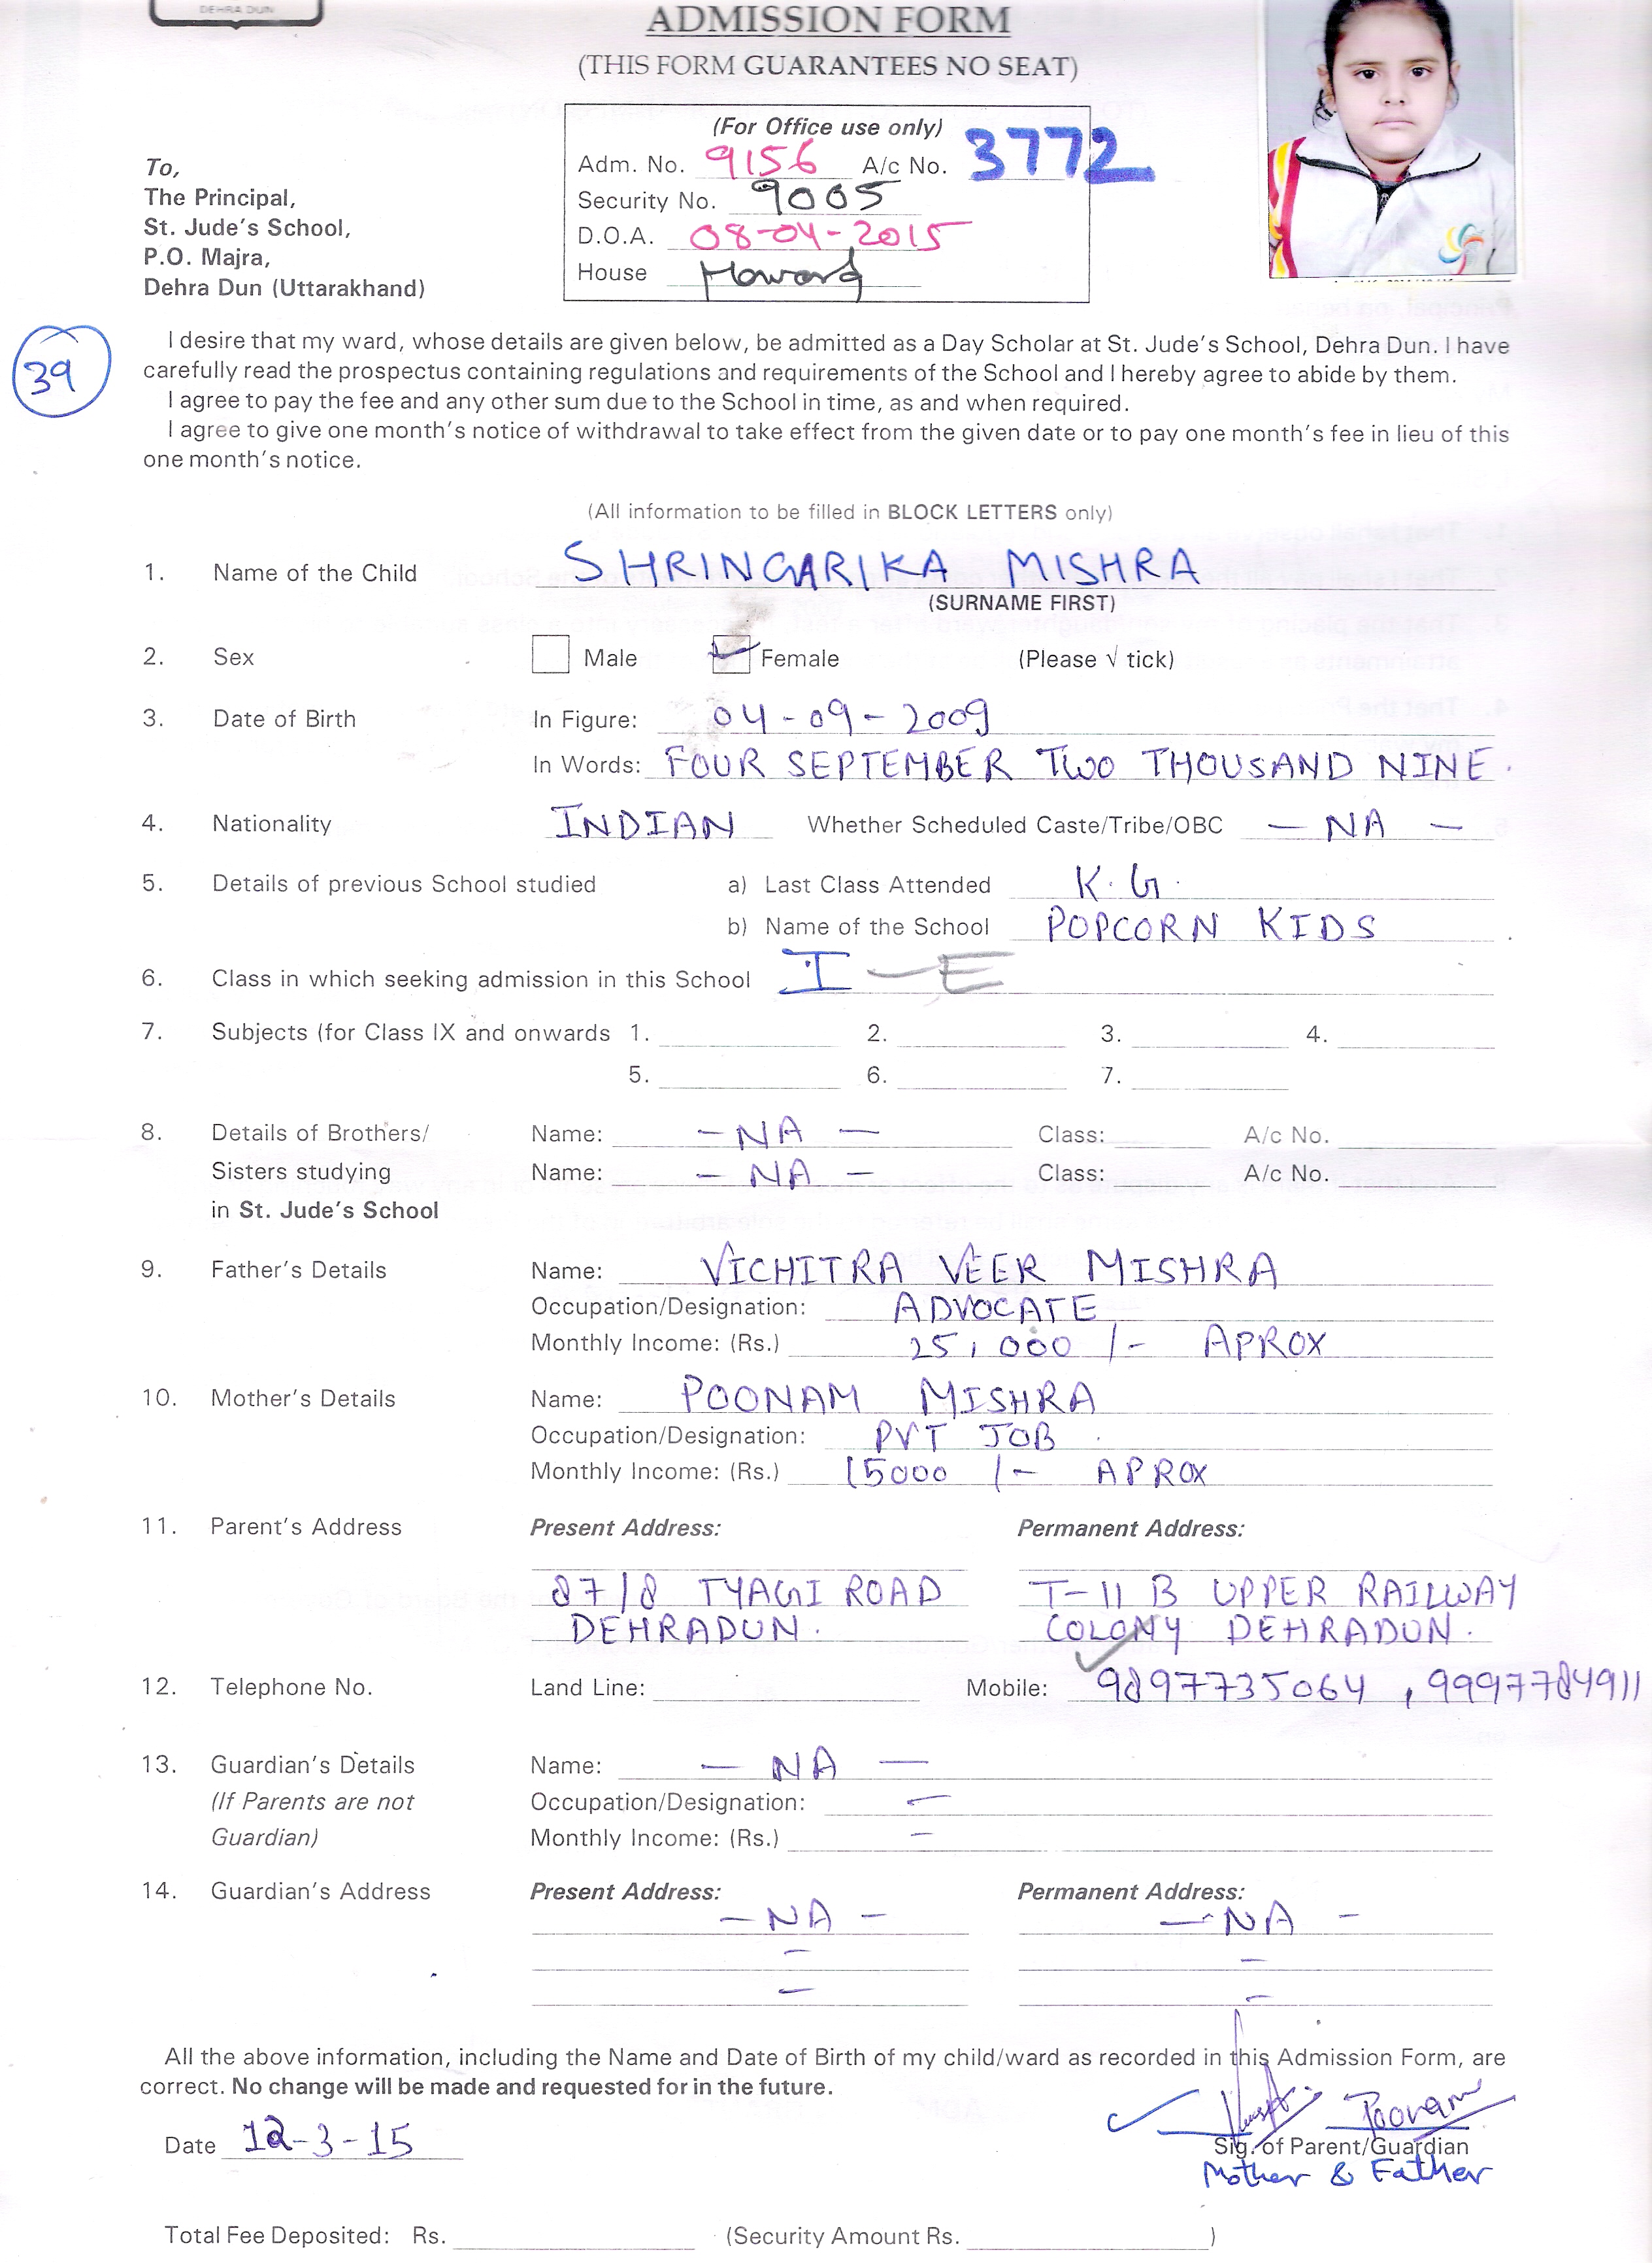 DEHRA DUN
ADMISSION FORM
(THIS FORM GUARANTEES NO SEAT)
(For Office use only)
Adm. No. 9156 A/c No. 3772
Security No. 9005
D.O.A. 08-04-2015
House Howard
To,
The Principal,
St. Jude's School,
P.O. Majra,
Dehra Dun (Uttarakhand)
39
I desire that my ward, whose details are given below, be admitted as a Day Scholar at St. Jude's School, Dehra Dun. I have
carefully read the prospectus containing regulations and requirements of the School and I hereby agree to abide by them.
I agree to pay the fee and any other sum due to the School in time, as and when required.
I agree to give one month's notice of withdrawal to take effect from the given date or to pay one month's fee in lieu of this
one month's notice.
(All information to be filled in BLOCK LETTERS only)
1. Name of the Child SHRINGARIKA MISHRA
(SURNAME FIRST)
2. Sex Male Female (Please √ tick)
3. Date of Birth In Figure: 04-09-2009
In Words: FOUR SEPTEMBER TWO THOUSAND NINE.
4. Nationality INDIAN Whether Scheduled Caste/Tribe/OBC — NA —
5. Details of previous School studied a) Last Class Attended K.G.
b) Name of the School POPCORN KIDS
6. Class in which seeking admission in this School I - E
7. Subjects (for Class IX and onwards 1. 2. 3. 4.
5. 6. 7.
8. Details of Brothers/ Name: - NA - Class: A/c No.
Sisters studying Name: - NA - Class: A/c No.
in St. Jude's School
9. Father's Details Name: VICHITRA VEER MISHRA
Occupation/Designation: ADVOCATE
Monthly Income: (Rs.) 25,000 /- APROX
10. Mother's Details Name: POONAM MISHRA
Occupation/Designation: PVT JOB
Monthly Income: (Rs.) 15000 /- APROX
11. Parent's Address Present Address: Permanent Address:
87/8 TYAGI ROAD T-11 B UPPER RAILWAY
DEHRADUN. COLONY DEHRADUN.
12. Telephone No. Land Line: Mobile: 9897735064, 9997784911
13. Guardian's Details Name: — NA —
(If Parents are not Occupation/Designation: -
Guardian) Monthly Income: (Rs.) -
14. Guardian's Address Present Address: Permanent Address:
- NA - - NA -
- -
- -
All the above information, including the Name and Date of Birth of my child/ward as recorded in this Admission Form, are
correct. No change will be made and requested for in the future.
Poonam
Date 12-3-15 Sig. of Parent/Guardian
Mother & Father
Total Fee Deposited: Rs. (Security Amount Rs. )